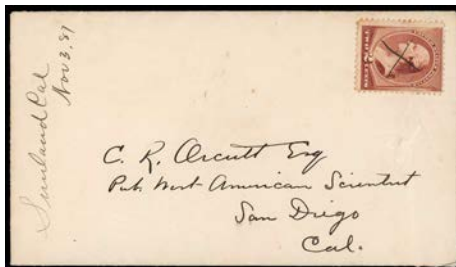 Sunland Cal
Nov 3, 87
C. R. Orcutt Esq
Pub. West American Scientist
San Diego
Cal.